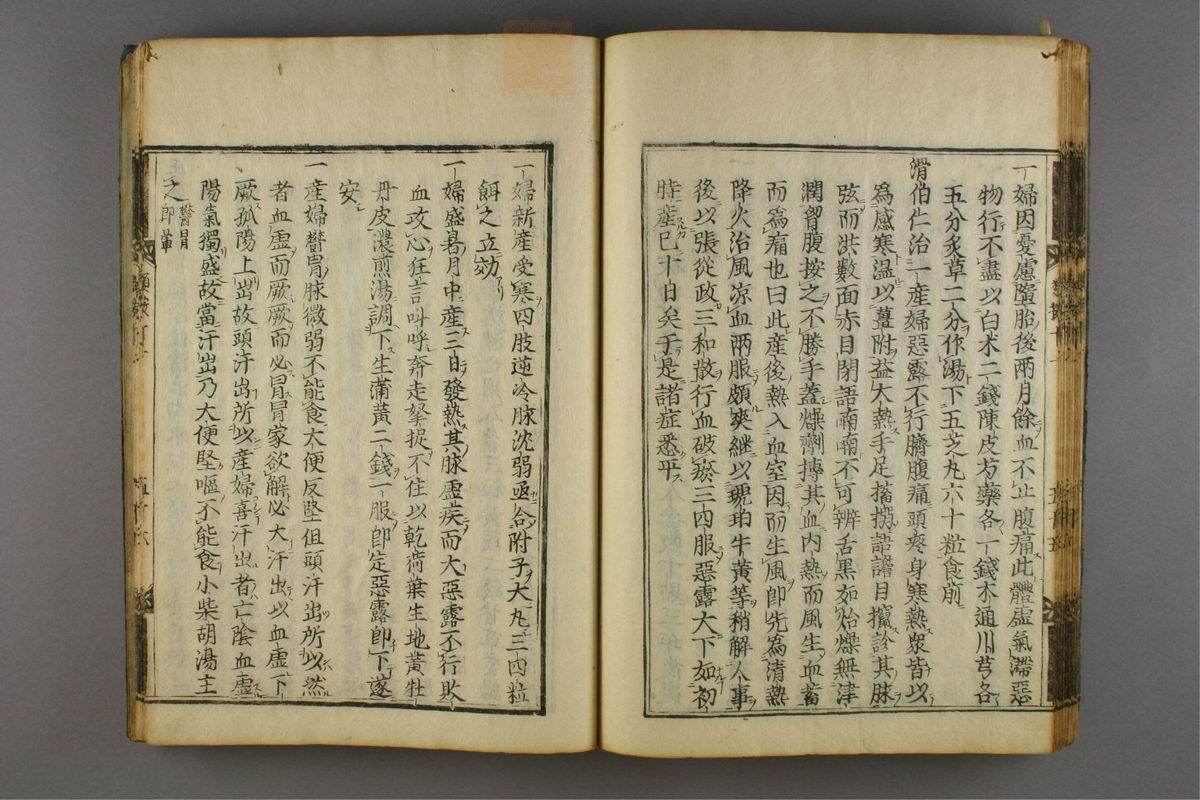 一婦因憂慮墮胎後兩月餘血不止腹痛此體虛氣滯惡
物行不盡以白朮二錢陳皮芍藥各一錢木通川芎各
五分炙草二分作湯下五芝丸六十粒食前
滑伯仁治一產婦惡露不行臍腹痛頭疼身寒熱衆皆以
為感寒溫以薑附益大熱手足搐搦語譫目攛診其脉
弦而洪數面赤目閉語喃喃不可辨舌黑如炲燥無津
潤胷腹按之不勝手蓋燥劑摶其血内熱而風生血蓄
而為痛也曰此產後熱入血室因而生風即先為清熱
降火治風凉血兩服頗爽継以琥珀牛黄等稍解人事
後以張從政三和散行血破瘀三四服惡露大下如初
時產已十日矣于是諸症悉平
一婦新產受寒四肢逆冷脉沈弱亟合附子大丸三四粒
餌之立効
一婦盛暑月中產三日發熱其脉虛疾而大惡露不行敗
血攻心狂言叫呼奔走拏捉不住以乾荷葉生地黄牡
丹皮濃煎湯調下生蒲黄二錢一服即定惡露即下遂
安
一產婦欝冐脉微弱不能食大便反堅但頭汗出所以然
者血虛而厥厥而必冐冐家欲解必大汗出以血虛下
厥孤陽上出故頭汗出所以產婦喜汗出者亡陰血虛
陽氣獨盛故當汗出乃大便堅嘔不能食小柴胡湯主
之欝冐即暈